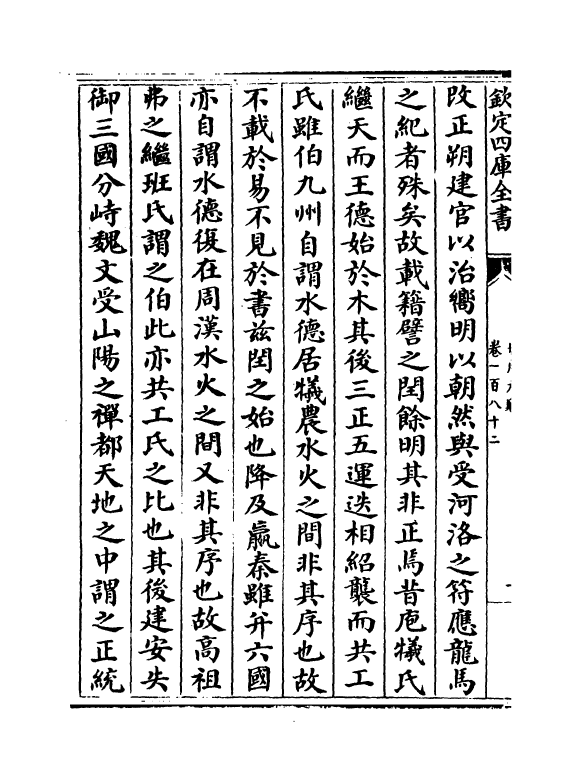 欽定四庫全書
卷一百八十二
改正朔建官以治嚮明以朝然與受河洛之符應龍馬
之紀者殊矣故載籍譬之閏餘明其非正焉昔庖犧氏
繼天而王德始於木其後三正五運迭相紹襲而共工
氏雖伯九州自謂水德居犧農水火之間非其序也故
不載於易不見於書兹閏之始也降及嬴秦雖并六國
亦自謂水德復在周漢水火之間又非其序也故高祖
弗之繼班氏謂之伯此亦共工氏之比也其後建安失
御三國分峙魏文受山陽之禪都天地之中謂之正統